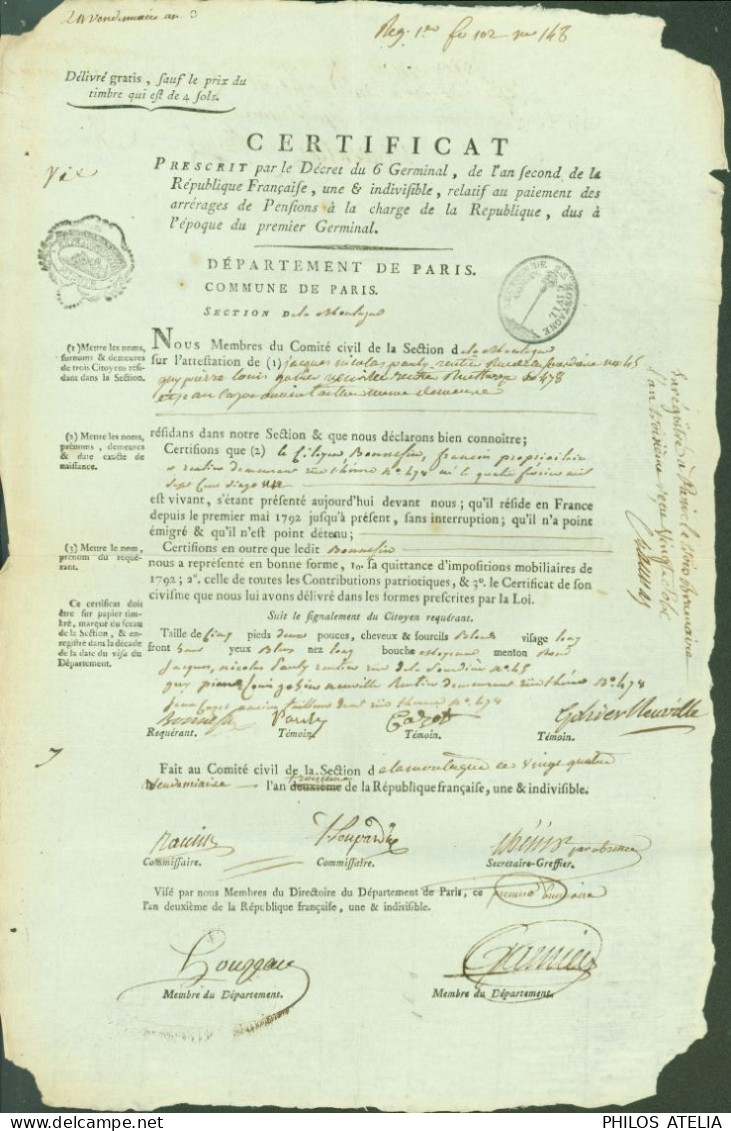 Vendemiaire an 3
Reg. 1er fo 102 no 148
Délivré gratis, sauf le prix du
timbre qui est de 4 sols.
CERTIFICAT
PRESCRIT par le Décret du 6 Germinal, de l'an second de la
République Française, une & indivisible, relatif au paiement des
arrérages de Pensions à la charge de la Republique, dus à
l'époque du premier Germinal.
DÉPARTEMENT DE PARIS.
COMMUNE DE PARIS.
SECTION De la Montagne
(1) Mettre les noms,
surnoms & demeures
de trois Citoyens rési-
dant dans la Section.
NOUS Membres du Comité civil de la Section de la Montagne
sur l'attestation de (1) jacques nicolas pauly rentier no 45
guy pierre louis gohier neuville rentier no 478
(2) Mettre les noms,
prénoms, demeures
& date exacte de
naissance.
résidans dans notre Section & que nous déclarons bien connoître;
Certifions que (2) le Citoyen Bonnefin, francois propriétaire
et rentier demeurant no 478 né le quatre février mil
sept cent
est vivant, s'étant présenté aujourd'hui devant nous; qu'il réside en France
depuis le premier mai 1792 jusqu'à présent, sans interruption; qu'il n'a point
émigré & qu'il n'est point détenu;
(3) Mettre le nom,
prénom du requé-
rant.
Certifions en outre que ledit Bonnefin
nous a représenté en bonne forme, 1o. sa quittance d'impositions mobiliaires de
1792; 2o. celle de toutes les Contributions patriotiques, & 3o. le Certificat de son
civisme que nous lui avons délivré dans les formes prescrites par la Loi.
Ce certificat doit
être sur papier tim-
bré, marqué du sceau
de la Section, & en-
registré dans la décade
de la date du visa du
Département.
Suit le signalement du Citoyen requérant.
Taille de Cinq pieds deux pouces, cheveux & sourcils Blonds visage long
front haut yeux Bleus nez long bouche Moyenne menton Rond
Jacques, nicolas Pauly rentier rue de la no 45
guy pierre Louis gohier neuville Rentier demeurant no 478
no 478
Bonnefin Pauly Gohier Neuville
Requérant. Témoin. Témoin. Témoin.
Fait au Comité civil de la Section de la montagne ce vingt quatre
Vendemiaire l'an deuxième troisieme de la République Française, une & indivisible.
Commissaire. Commissaire. Secretaire-Greffier.
Visé par nous Membres du Directoire du Département de Paris, ce premier Brumaire
l'an deuxième de la République française, une & indivisible.
Garnier
Membre du Département. Membre du Département.
Enregistré à Paris le trois Brumaire
l'an troisième
PHILOS ATELIA